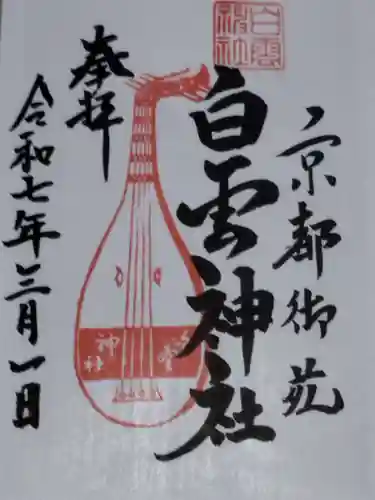 京都御苑
白雲神社
白雲
神社
奉拝
令和七年三月一日